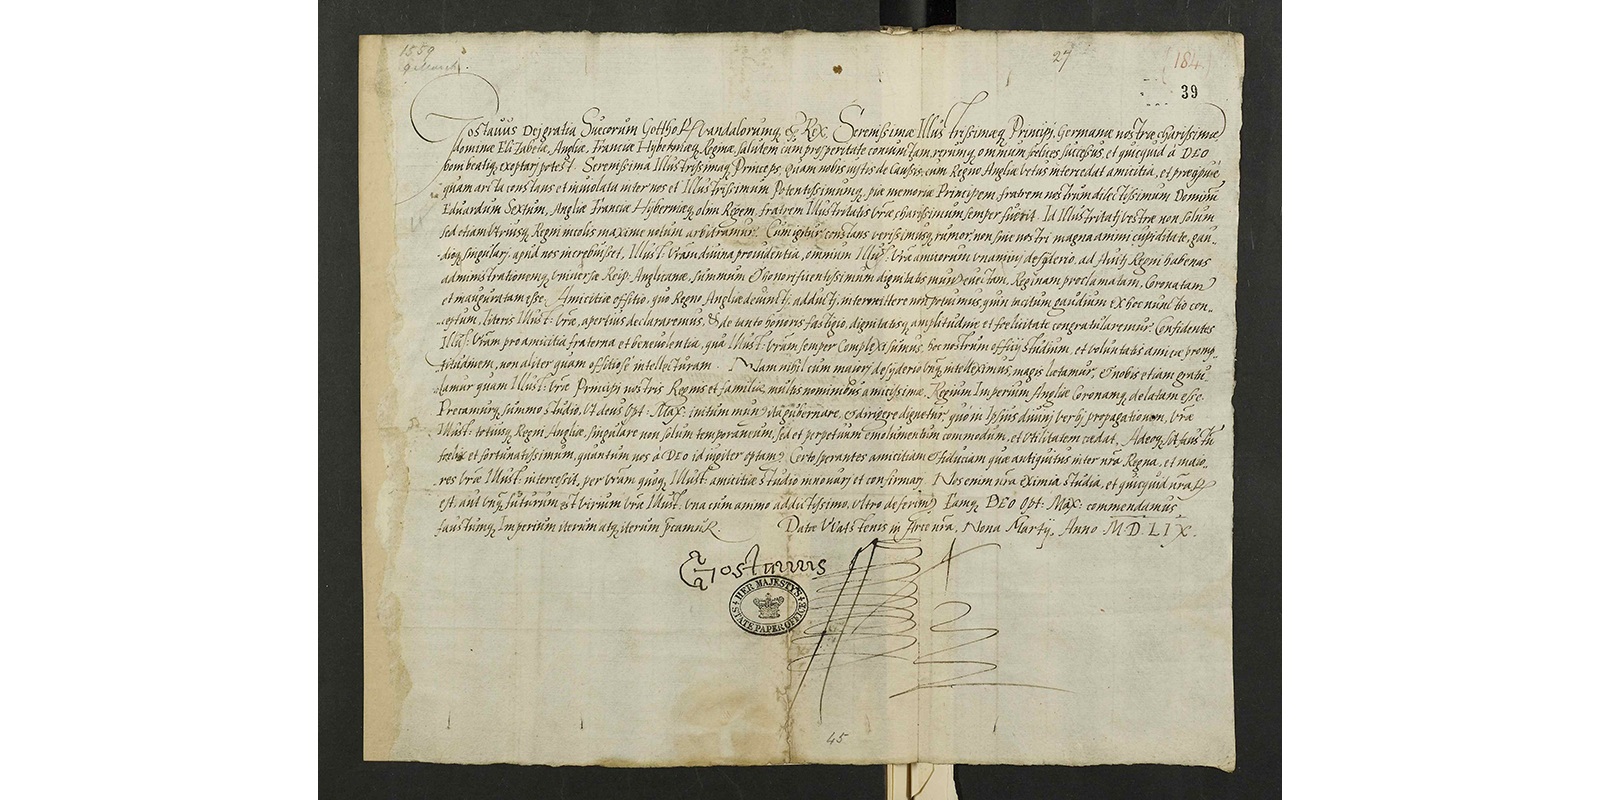 1559
9 March.
27
184
39
Gostavus Dei gratia Suecorum Gotthorum Vandalorumq, &c Rex, Serenissimæ Illustrissimæq Principi, Germanæ nostræ charissimæ
dominæ Elizabetæ, Angliæ, Franciæ Hyberniæq Reginæ, salutem cum prosperitate coniunctam, rerumq omnium fœlices successus, et quicquid à DEO
boni beatiq, exoptari potest. Serenissima Illustrissimaq Princeps, Quam nobis iustis de Causis, cum Regno Angliæ vetus intercedat amicitia, et præcipuè
quam arcta constans et inviolata inter nos et Illustrissimum Potentissimumq, piæ memoriæ Principem, fratrem nostrum dilectissimum Dominum
Eduardum Sextum, Angliæ Franciæ Hyberniæq, olim Regem, fratrem Illustritatis vræ charissimum semper fuerit. Id Illustritati vestræ non solum
sed etiam utriusq Regni incolis maxime notum arbitramur. Cum igitur constans verissimusq rumor, non sine nostri magna animi cupiditate, gau-
dioq singulari apud nos increbuisset, Illust: Vram divina providentia, omnium Illust: Vræ amicorum unanimi desyderio, ad Aviti Regni habenas
administrationemq universæ Reip: Anglicanæ, summum & honorificentissimum dignitatis evectam, Reginam proclamatam, Coronatam
et inauguratam esse. Amicitiæ offitio, quo Regno Angliæ devincti, adducti, intermittere non potuimus, quin tacitum gaudium ex hoc nuntio con-
ceptum, literis Illust: Vræ, apertius declararemus, & de tanto honoris fastigio, dignitatisq amplitudine et fœlicitate congratularemur. Confidentes
Illust: Vram pro amicitia fraterna et benevolentia, qua Illust: Vram semper Complexi sumus, hoc nostrum officij studium, et voluntatis amicæ promp-
titudinem, non aliter quam offitiosè intellecturam. Nam nihil cum maiori desyderio unq intelleximus, magis lætamur, & nobis etiam gratu-
lamur quam Illust: Vræ Principi nostris Regnis et familiæ multis nominibus amicissimæ, Regium Imperium Angliæ Coronamq delatam esse.
Precamurq summo studio, Ut deus Opt: Max: initum munus ita gubernare, & dirigere dignetur, quo in Ipsius divini verbi propagationem, Vræ
Illust: totiusq Regni Angliæ, singulare non solum temporaneum, sed et perpetuum emolumentum commodum, et Utilitatem cædat, Adeoq, sit faustum
fœlix et fortunatissimum, quantum nos à DEO id iugiter optamus. Certo sperantes amicitiam & fiduciam quæ antiquitus inter nra Regna, et maio-
res Vræ Illust: intercessit, per Vram quoq Illust: amicitiæ studio innovari et confirmari. Nos enim nra eximia studia, et quicquid nra
est, aut unq futurum est virium Vræ Illust: una cum animo addictissimo, ultro deferimus Eamq DEO Opt: Max: commendamus
faustumq Imperium iterum atq iterum precamur. Datæ in Arce nra, Nona Martij, Anno M.D.LIX.
Gostavus
HER MAJESTY'S
STATE PAPER OFFICE
45